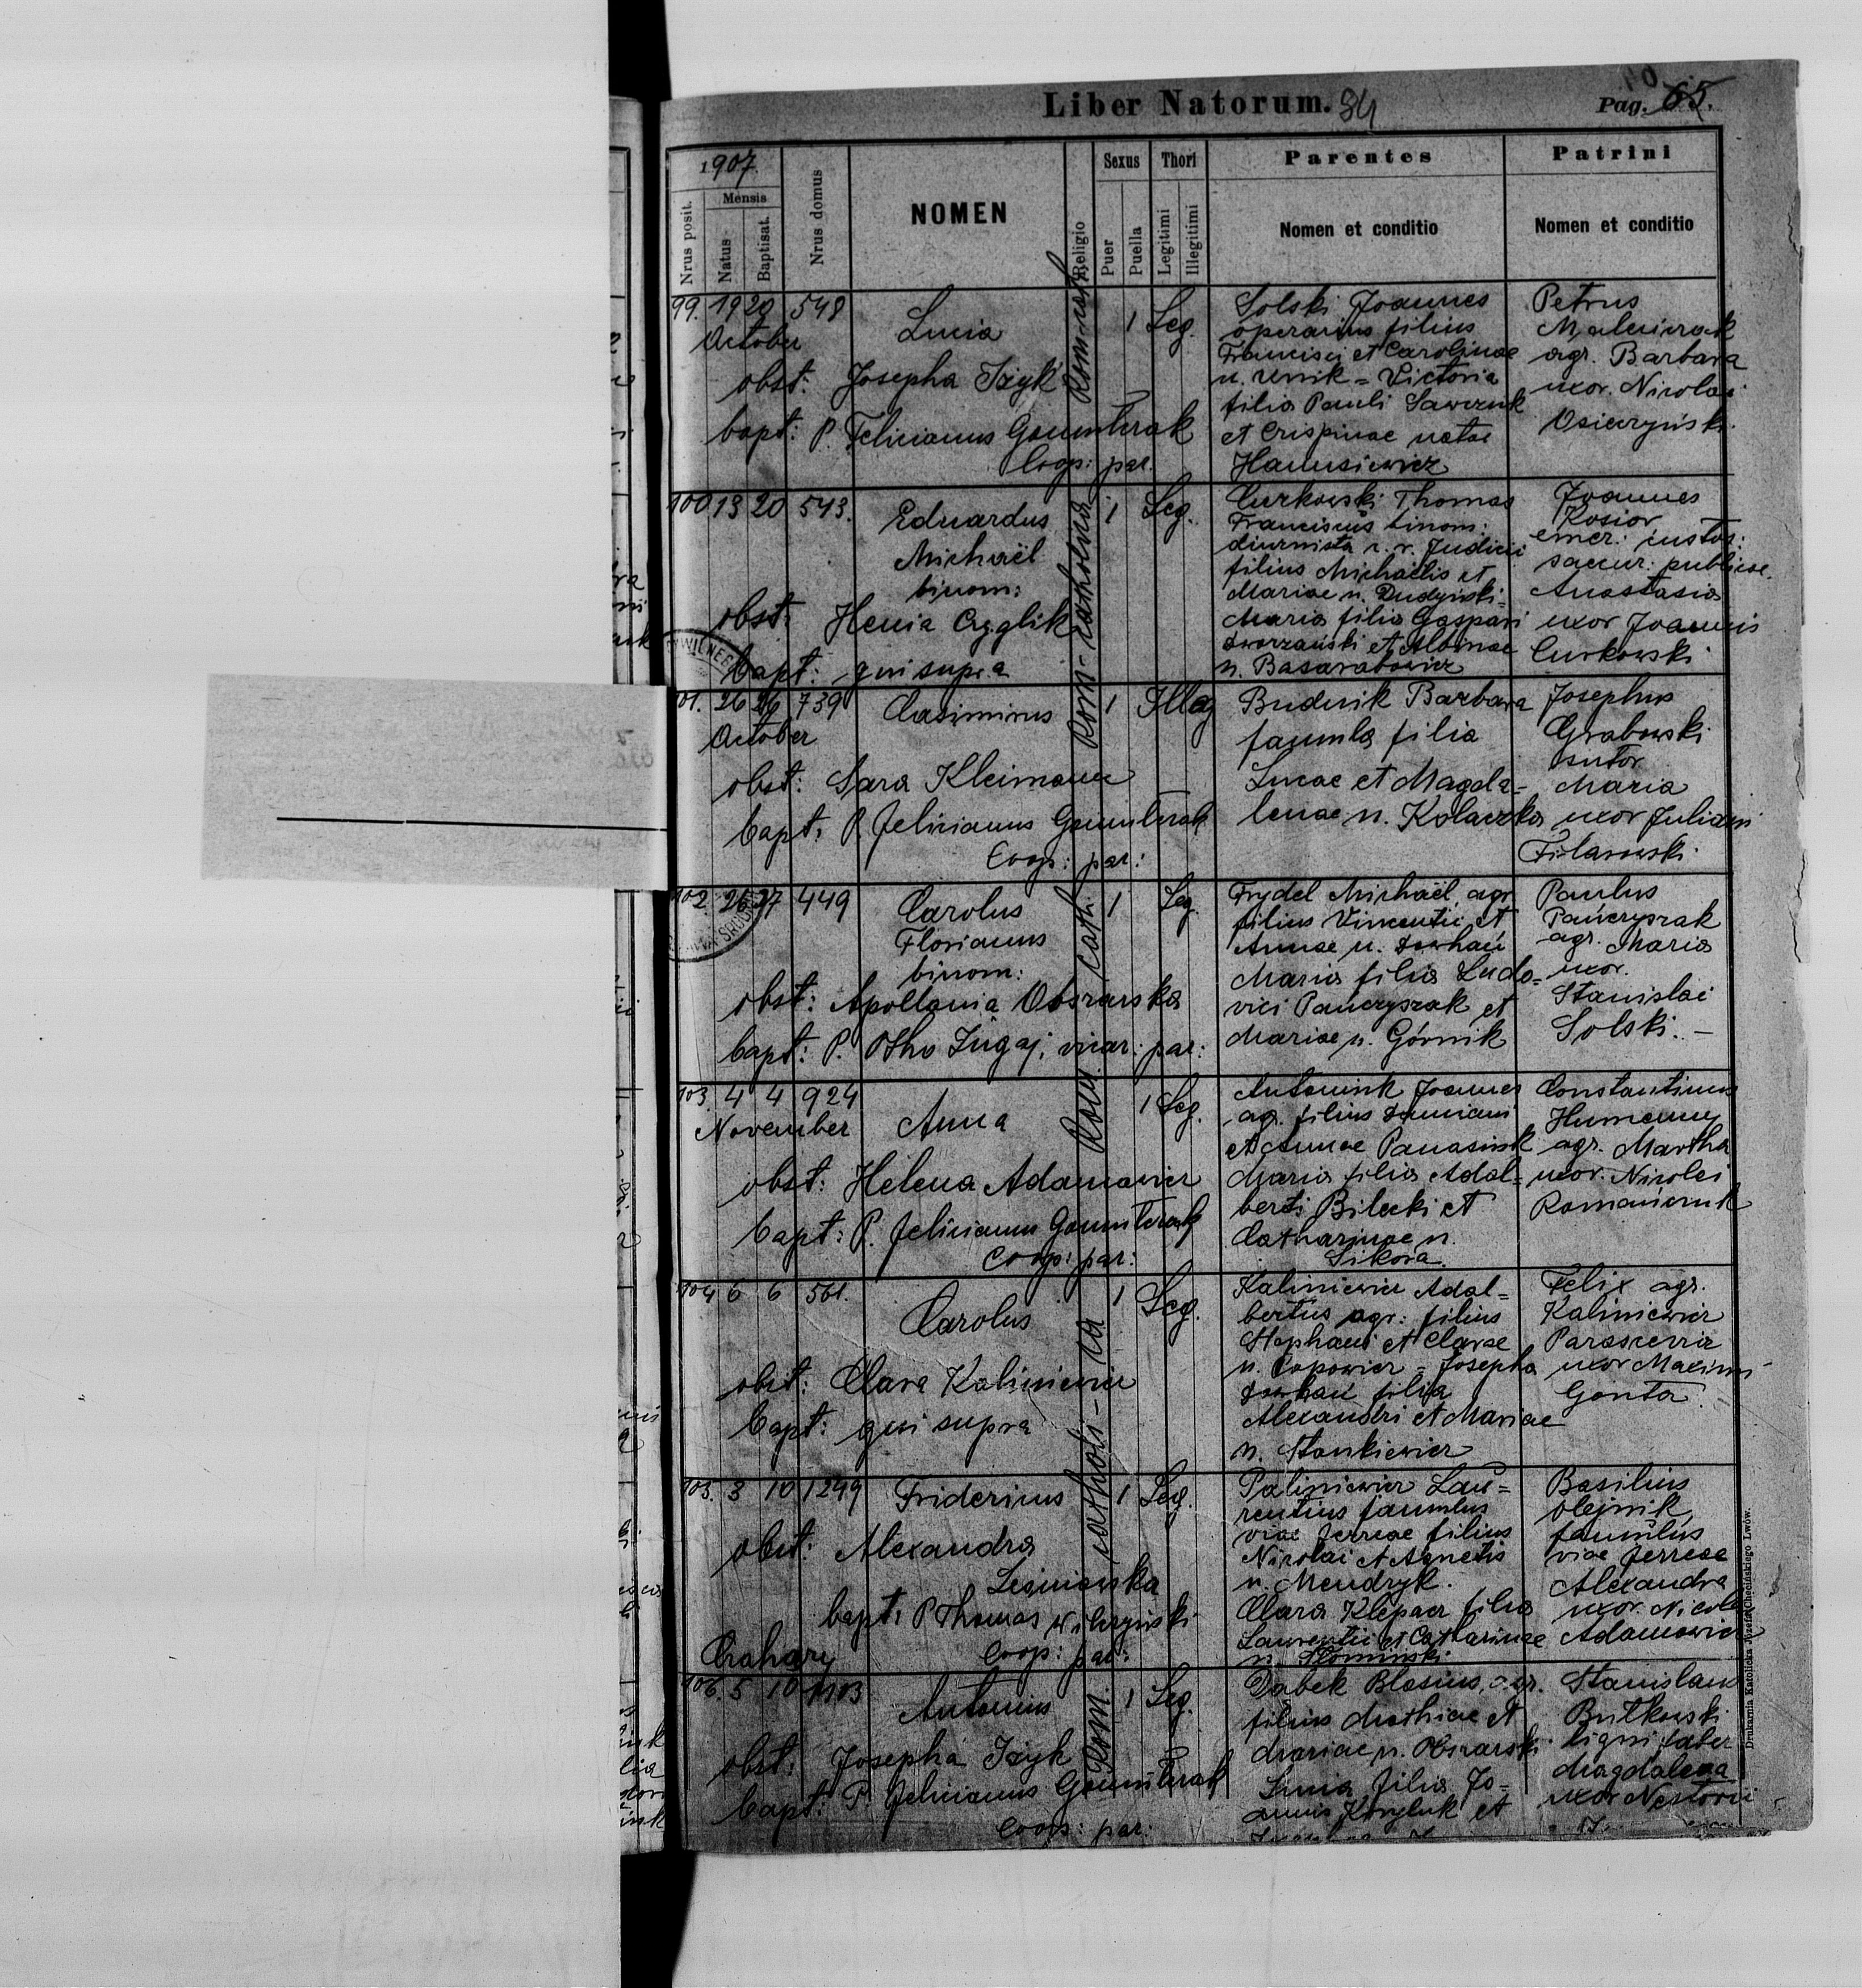 Liber Natorum. 84
Pag. 65.
1907.
Nrus posit.
Mensis
Natus
Baptisat.
Nrus domus
NOMEN
Religio
Sexus
Puer
Puella
Thori
Legitimi
Illegitimi
Parentes
Nomen et conditio
Patrini
Nomen et conditio
99. 19 20 548 Lucia 1 Leg.
October
obst: Josepha Izyk
bapt: P. Felicianus
Coop: par.
Solski Joannes
operarius filius
Francisci et Carolinae
n. = Victoria
filia Pauli Sawczuk
et Crispinae natae
Hanusiewicz
Petrus
agr. Barbara
uxor. Nicolai
100 13 20 543. Eduardus 1 Leg.
Michaël
binom:
obst: Henia Cyglik
bapt: qui supra
Curkowski Thomas
Franciscus binom:
diurnista c. r. Judicii
filius Michaëlis et
Mariae n. Dudyński =
Maria filia Gaspari
Dworzański et Albinae
n. Basarabowicz
Joannes
Kosior
emer: custos:
saecur: publicae.
Anastasia
uxor Joannis
Curkowski
101. 26 26 739 Casimirus 1 Illeg
October
obst: Sara Kleimann
bapt. P. Felicianus
Coop: par:
Budnik Barbara
famula filia
Lucae et Magda=
lenae n. Kolaczko
Josephus
Grabowski
sutor
Maria
uxor Juliani
Filarowski.
102. 26 27 449 Carolus 1 Leg.
Florianus
binom:
obst: Apollonia Obszarska
bapt: P. Otho Zugaj, vicar: par:
Frydel Michaël, agr
filius Vincentii et
Annae n. Dowhań
Maria filia Ludo=
vici Panczyszak et
Mariae n. Górnik
Paulus
Panczyszak
agr. Maria
uxor.
Stanislai
Solski. –
103. 4 4 924 Anna 1 Leg.
November
obst: Helena Adamowicz
bapt: P. Felicianus
Coop: par:
Antoniuk Joannes
agr. filius Damiani
et Annae Panasiuk
Maria filia Adal=
berti Bilecki et
Catharinae n.
Sikora.
Constantinus
Humenny
agr. Martha
uxor. Nicolai
Romańczuk
104 6 6 561. Carolus 1 Leg.
obst: Clara Kaliniewicz
bapt: qui supra
Kaliniewicz Adal=
bertus agr: filius
Stephani et Clarae
n. Popowicz = Josepha
Dowhań filia
Alexandri et Mariae
n. Stankiewicz
Felix agr.
Kaliniewicz
Parascevia
uxor Maximi
Gonta
105. 3 10 1249 Fridericus 1 Leg.
obst: Alexandra
Leśniowska
bapt: P Thomas Wilczyński
Coop: par:
Paliniewicz Lau=
rentius famulus
viae ferreae filius
Nicolai et Agnetis
n. Mendryk.
Clara Klepacz filia
Laurentii et Catharinae
n. Słomiński
Basilius
Olejnik,
famulus
viae ferreae
Alexandra
uxor. Nicolai
Adamowicz
106. 5 10 1103 Antonius 1 Leg.
obst: Josepha Izyk
bapt: P. Felicianus
Coop: par:
Dabek Blasius, agr.
filius Mathiae et
Mariae n. Obszarski.
Lucia filia Jo=
annis Koryluk et
Stanislaus
Butkowski
ligni faber
Magdalena
uxor Nestorii
Rom. cath.
Rom - catholica
Rom cath.
Rom. catholi - ca
Drukarnia Katolicka Józefa Chęcińskiego Lwów.